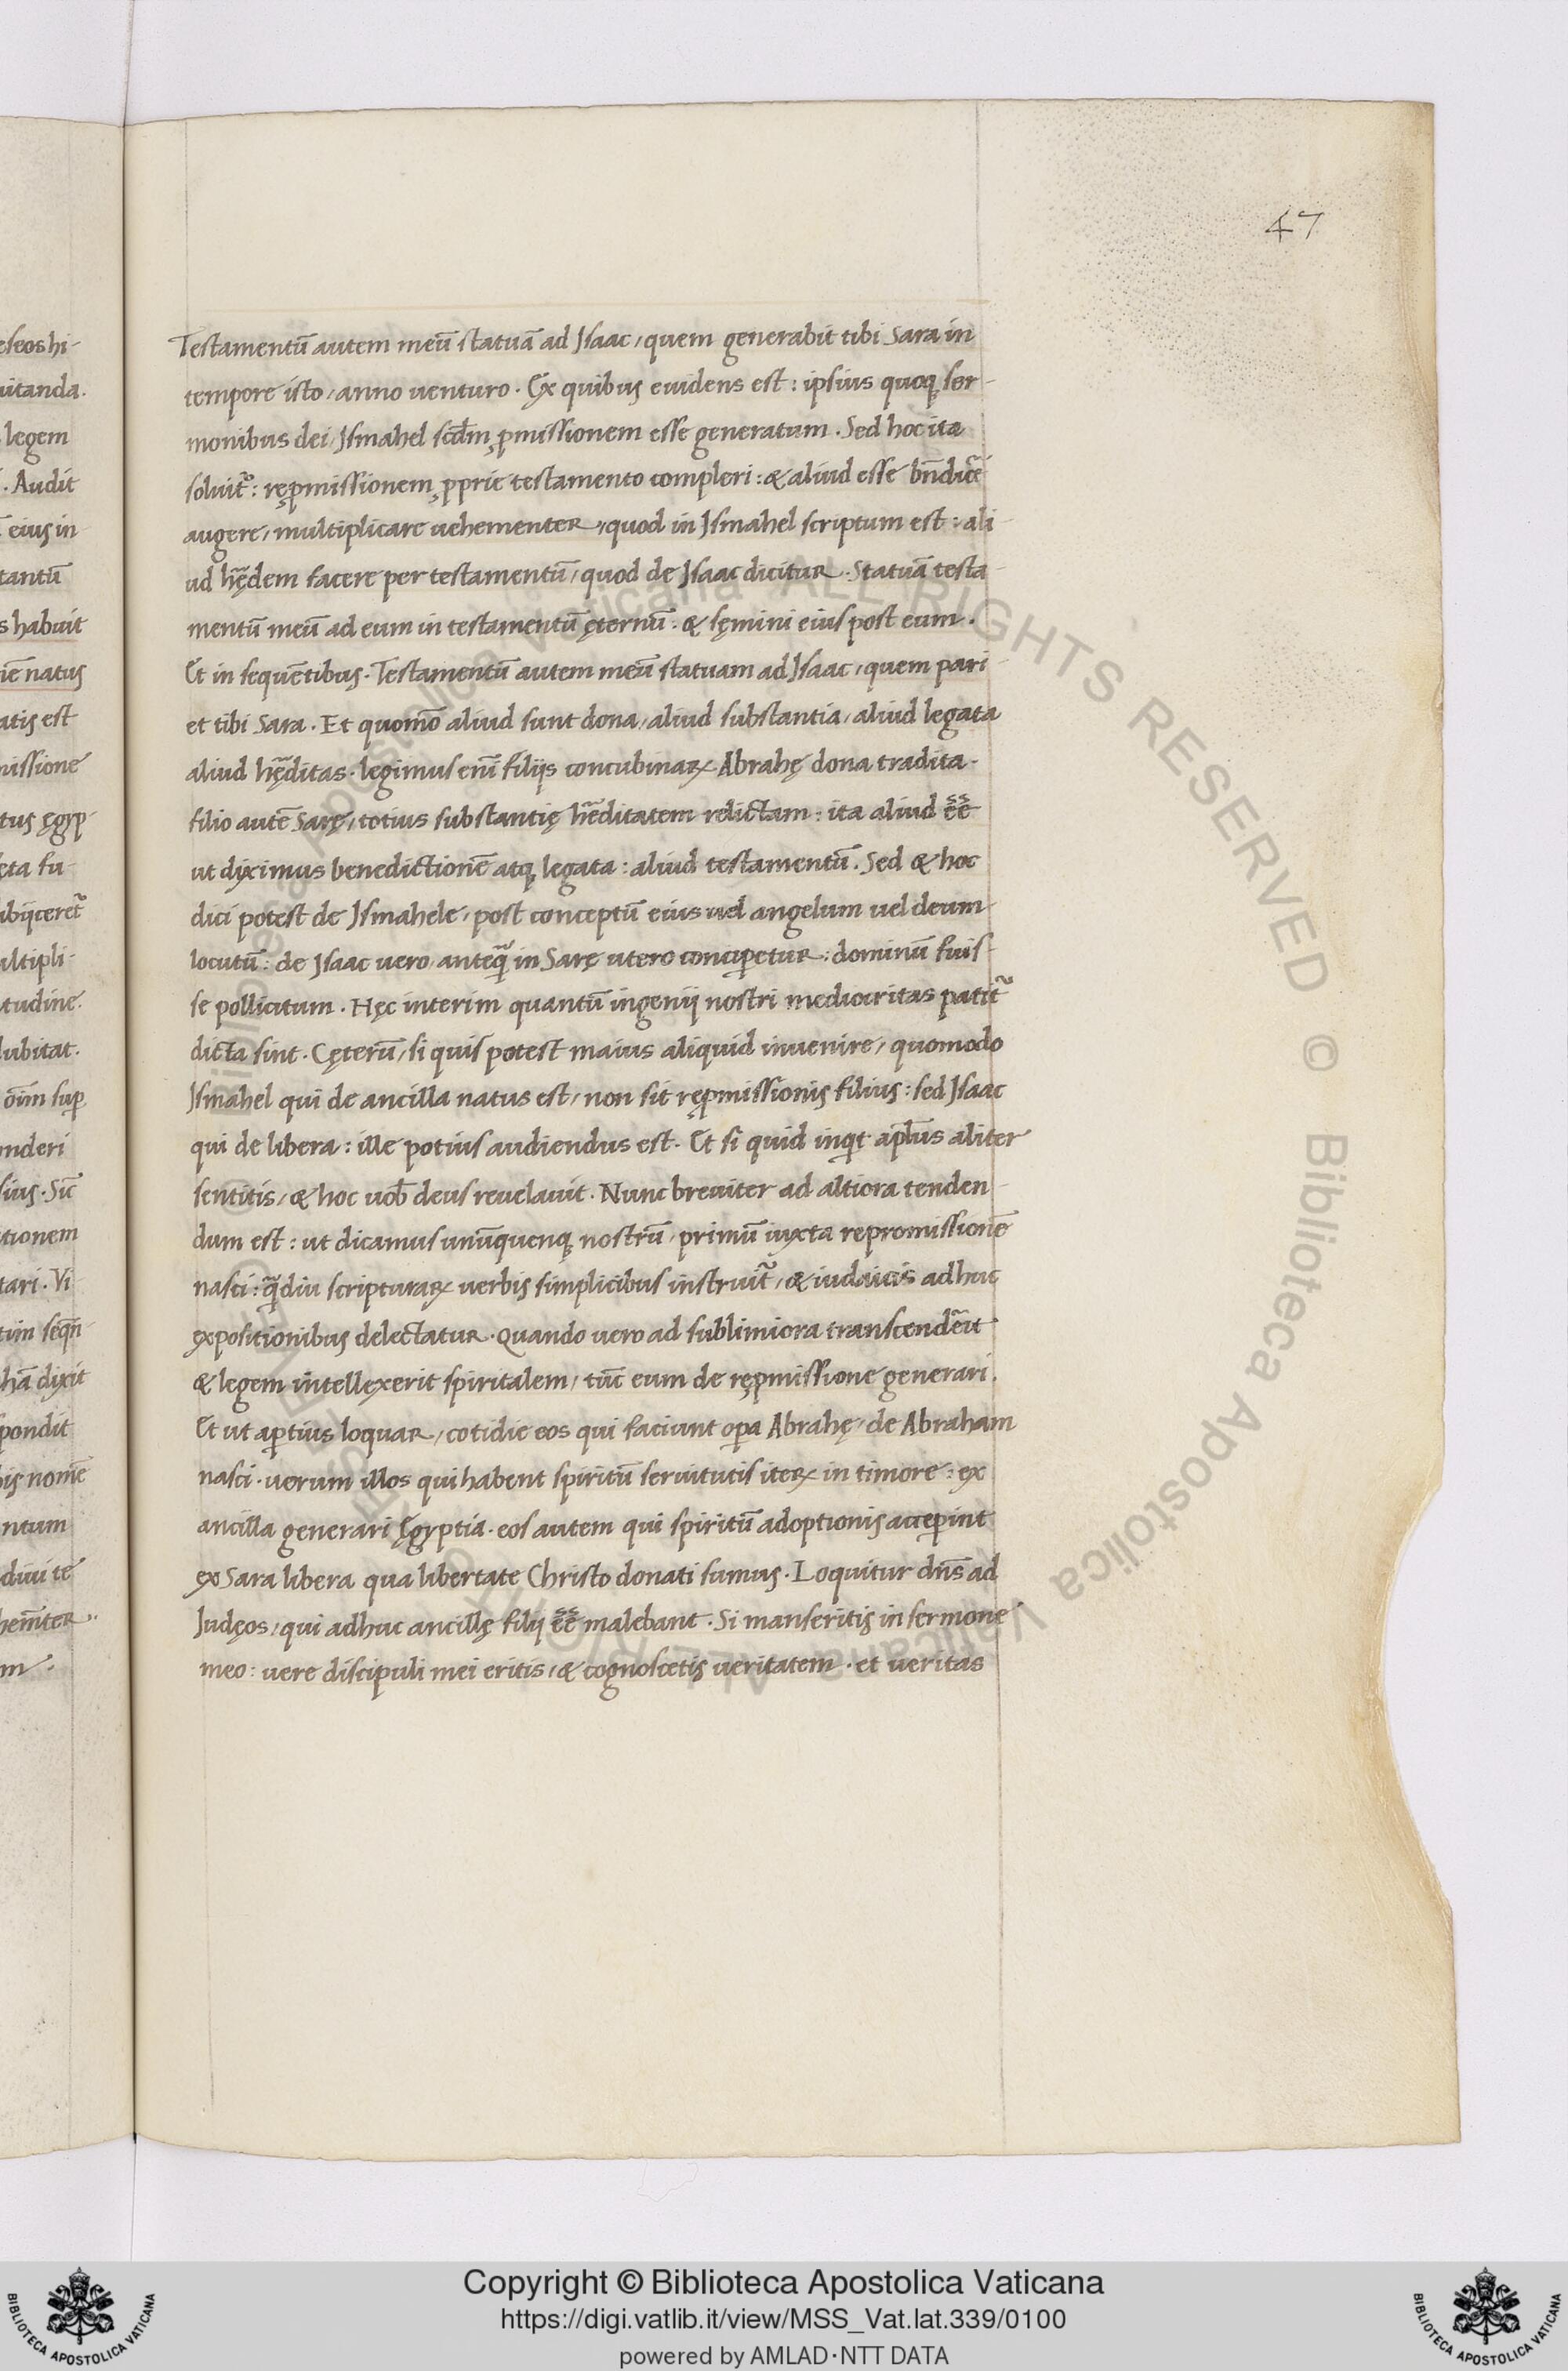 47
Testamentū autem meū statuā ad Jsaac, quem generabit tibi Sara in
tempore isto, anno uenturo. Ex quibus euidens est: ipsius quoqꝫ ser-
monibus dei, Jsmahel scd̄m ꝓmissionem esse generatum. Sed hoc ita
soluit᷑: reꝓmissionem ꝓprie testamento compleri: & aliud esse bn̄dicē
augere, multiplicare uehementer, quod in Jsmahel scriptum est: ali-
ud hęr̄dem facere per testamentū, quod de Jsaac dicitur. Statuā testa-
mentū meū ad eum in testamentū ęternū. & sęmini eius post eum.
Et in sequētibus. Testamentū autem meū statuam ad Jsaac, quem pari-
et tibi Sara. Et quomō aliud sunt dona, aliud substantia, aliud legata
aliud hęr̄ditas. legimus enī filijs concubinaꝝ Abrahę dona tradita.
filio autē Sarę, totius substantię hēditatem relictam: ita aliud ēē
ut diximus benedictionē atqꝫ legata: aliud testamentū. Sed & hoc
dici potest de Jsmahele, post conceptū eius uel angelum uel deum
locutū: de Jsaac uero, anteq̄ in Sarę utero conciꝑetur: dominū fuis-
se pollicitum. Hęc interim quantū ingenij nostri mediocritas patit᷑
dicta sint. Cęterū, si quis potest maius aliquid inuenire, quomodo
Jsmahel qui de ancilla natus est, non sit reꝓmissionis filius: sed Jsaac
qui de libera: ille potius audiendus est. Et si quid inqͥt apl̄us aliter
sentitis, & hoc uob̄ deus reuelauit. Nunc breuiter ad altiora tenden-
dum est: ut dicamus unūquenqꝫ nostrū, primū iuxta repromissionē
nasci: q̄diu scripturaꝝ uerbis simplicibus instruit᷑, & iudaicis adhuc
expositionibus delectatur. Quando uero ad sublimiora transcendēit
& legem intellexerit spiritalem, tūc eum de reꝓmissione generari.
Et ut aꝑtius loquar, cotidie eos qui faciunt oꝑa Abrahę, de Abraham
nasci. uerum illos qui habent spiritū seruitutis iteꝝ in timore: ex
ancilla generari Ęgyptia. eos autem qui spiritū adoptionis acceꝑint
ex Sara libera qua libertate Christo donati sumus. Loquitur dn̄s ad
Judęos, qui adhuc ancillę filij ēē malebant. Si manseritis in sermone
meo: uere discipuli mei eritis, & cognoscetis ueritatem. et ueritas
Copyright © Biblioteca Apostolica Vaticana
https://digi.vatlib.it/view/MSS_Vat.lat.339/0100
powered by AMLAD·NTT DATA